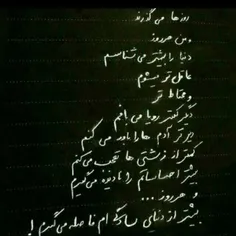 روزها می گذرند...
و من هرروز
دنیا را بیشتر می شناسم
عاقل تر میشوم
و محتاط تر
دیگر کمتر رویا می بافم
دیرتر آدم ها را باور می کنم
کمتر از زشتی ها تعجب می کنم
بیشتر احساساتم را نادیده می گیرم
و هرروز ...
بیشتر از دنیای سادگی ام فاصله می گیرم !